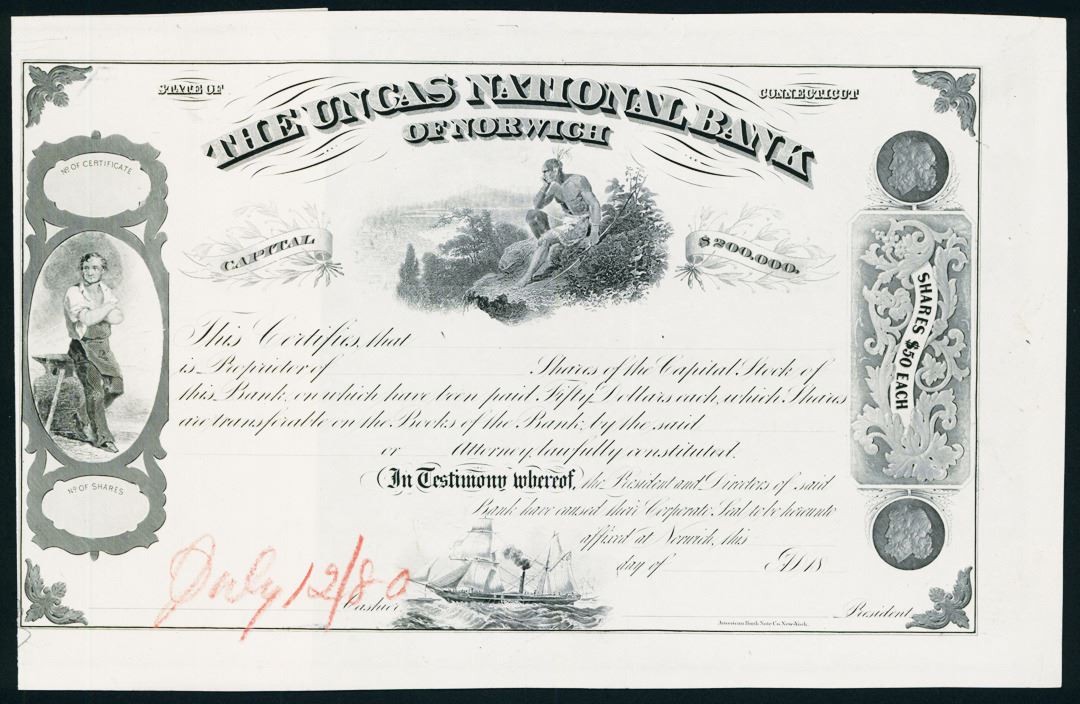 STATE OF
CONNECTICUT
THE UNCAS NATIONAL BANK
OF NORWICH
No OF CERTIFICATE
CAPITAL
$200,000.
SHARES $50 EACH
This Certifies, that
is Proprietor of Shares of the Capital Stock of
this Bank, on which have been paid Fifty Dollars each, which Shares
are transferable on the Books of the Bank, by the said
or Attorney, lawfully constituted.
No OF SHARES
In Testimony whereof, the President and Directors of said
Bank have caused their Corporate Seal to be hereunto
affixed at Norwich, this
day of AD 18
July 12/80
Cashier
President
American Bank Note Co. New-York.